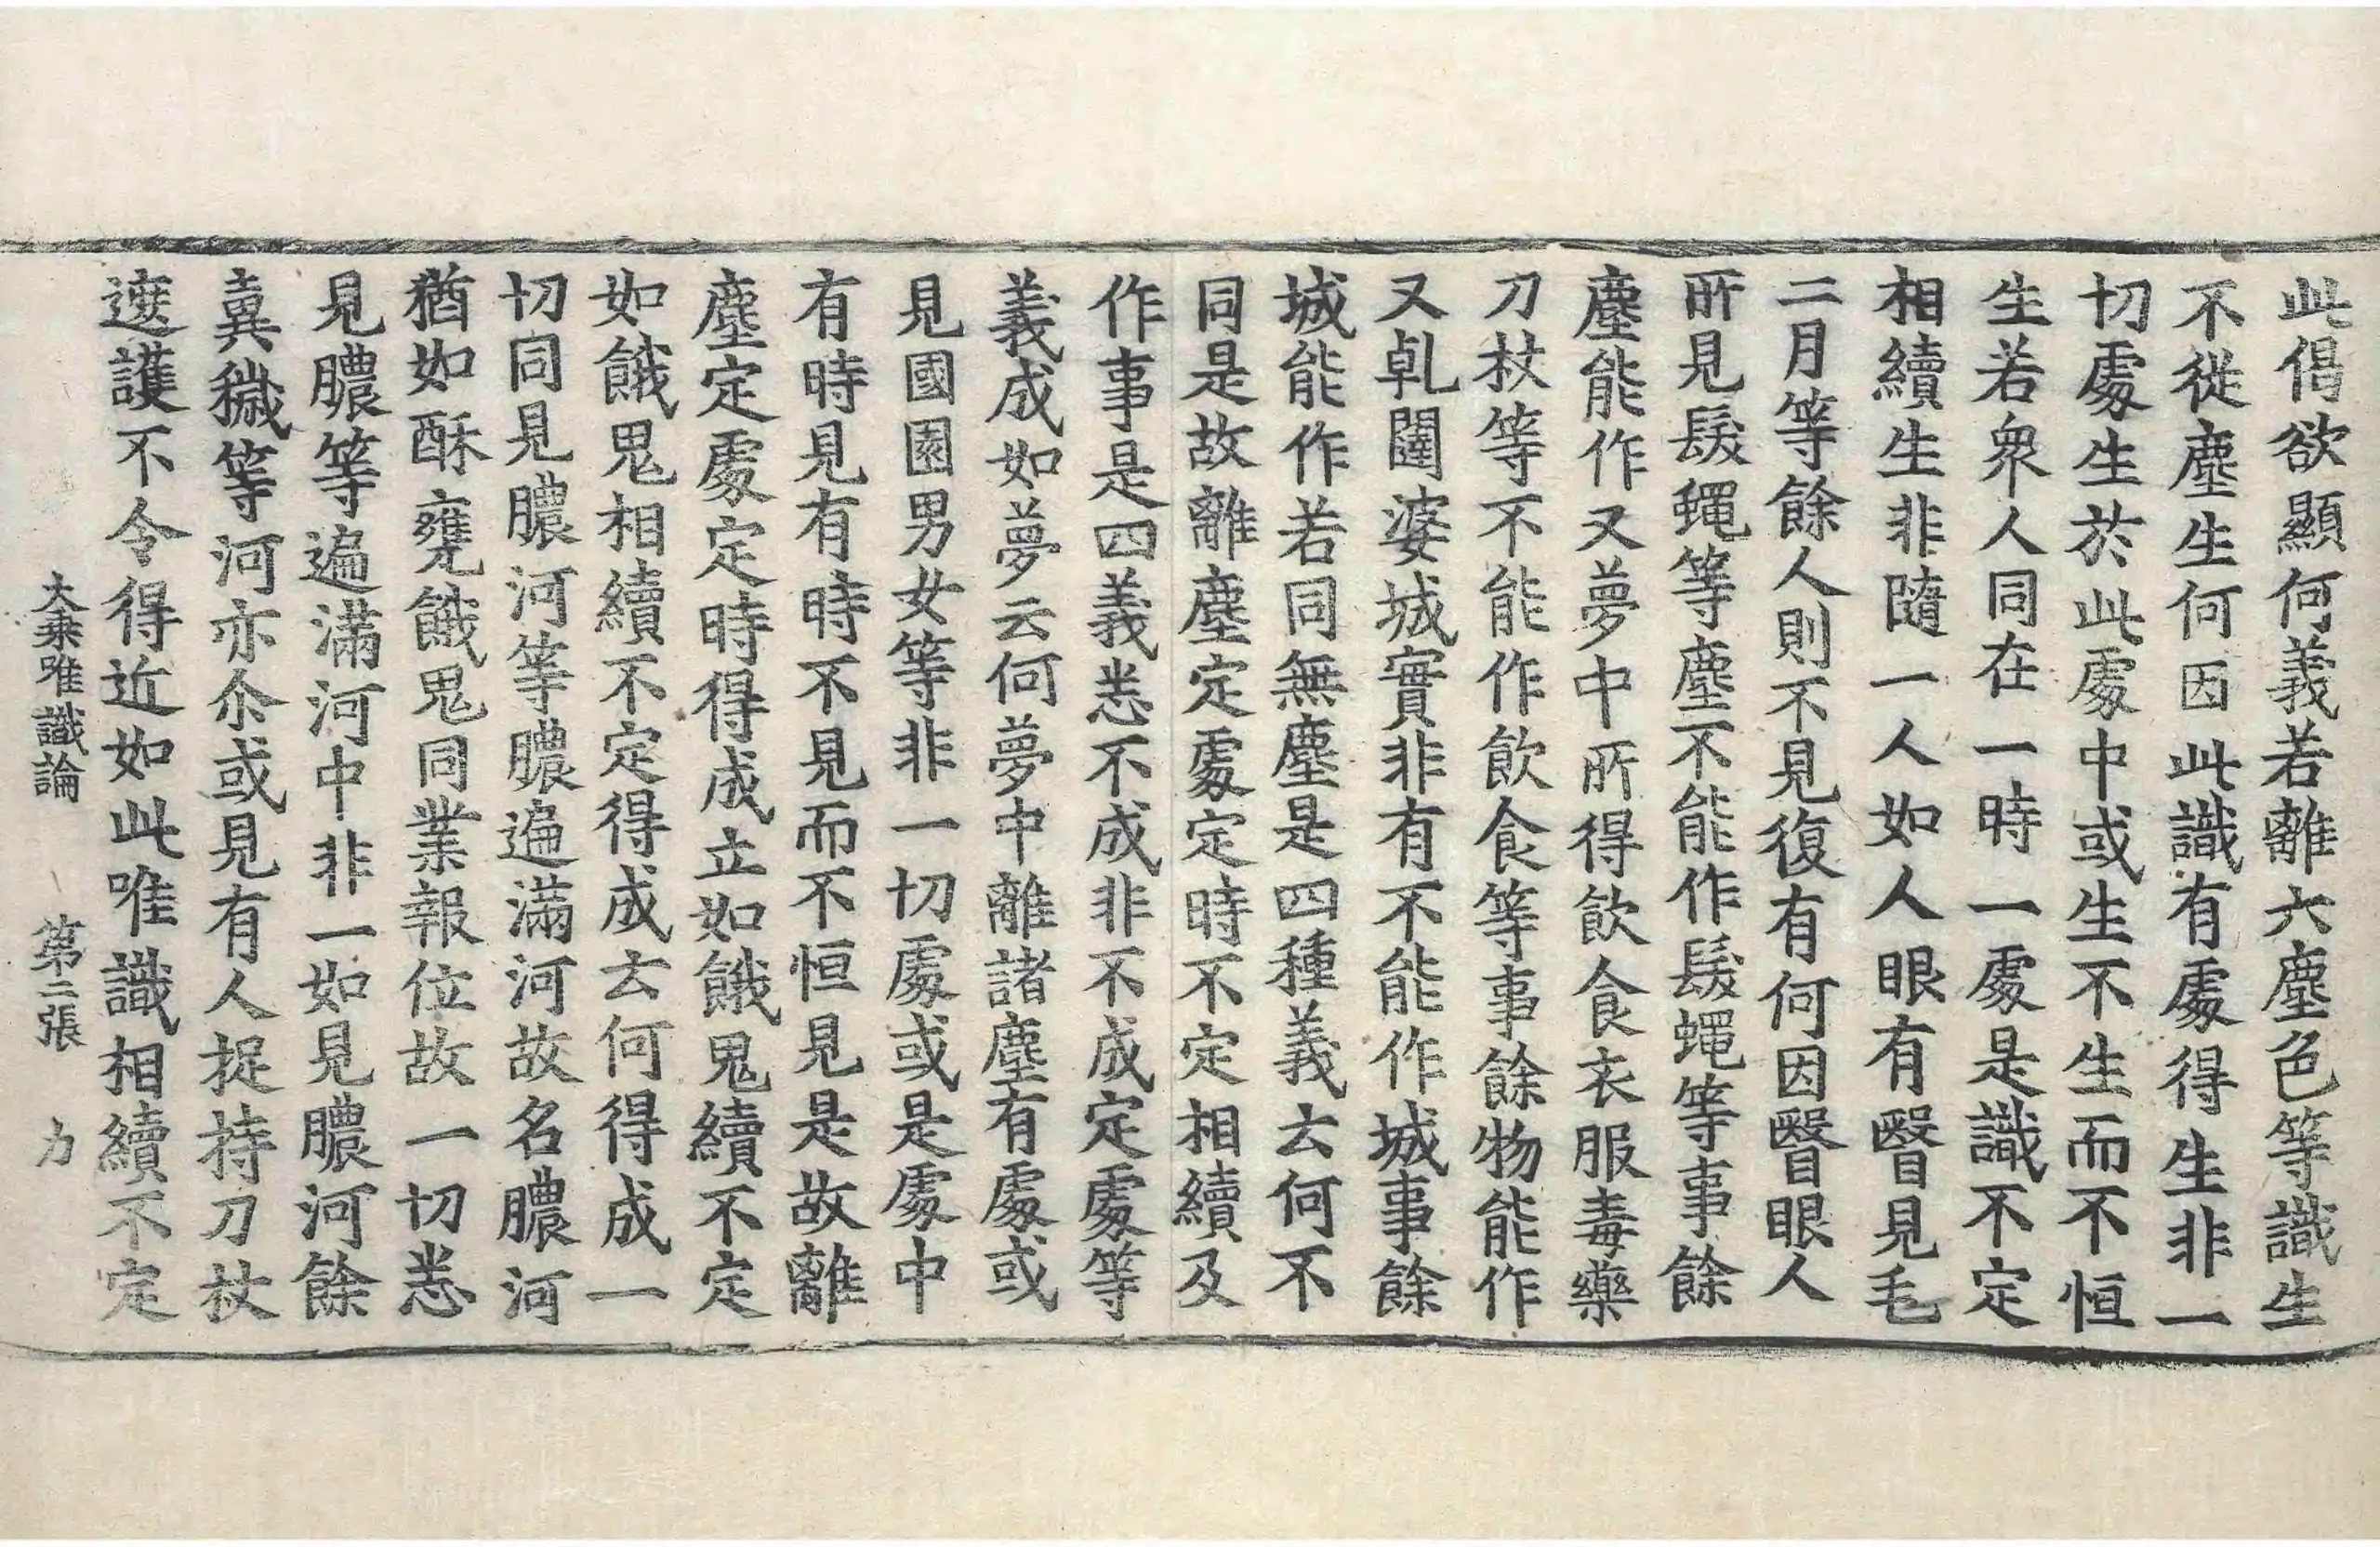 此偈欲顯何義若離六塵色等識生
不從塵生何因此識有處得生非一
切處生於此處中或生不生而不恒
生若衆人同在一時一處是識不定
相續生非隨一人如人眼有瞖見毛
二月等餘人則不見復有何因瞖眼人
所見髮蠅等塵不能作髮蠅等事餘
塵能作又夢中所得飲食衣服毒藥
刀杖等不能作飲食等事餘物能作
又乹闥婆城實非有不能作城事餘
城能作若同無塵是四種義云何不
同是故離塵定處定時不定相續及
作事是四義悉不成非不成定處等
義成如夢云何夢中離諸塵有處或
見國園男女等非一切處或是處中
有時見有時不見而不恒見是故離
塵定處定時得成立如餓鬼續不定
如餓鬼相續不定得成云何得成一
切同見膿河等膿遍滿河故名膿河
猶如酥甕餓鬼同業報位故一切悉
見膿等遍滿河中非一如見膿河餘
糞穢等河亦尒或見有人捉持刀杖
遮護不令得近如此唯識相續不定
大乘唯識論 第二張 力